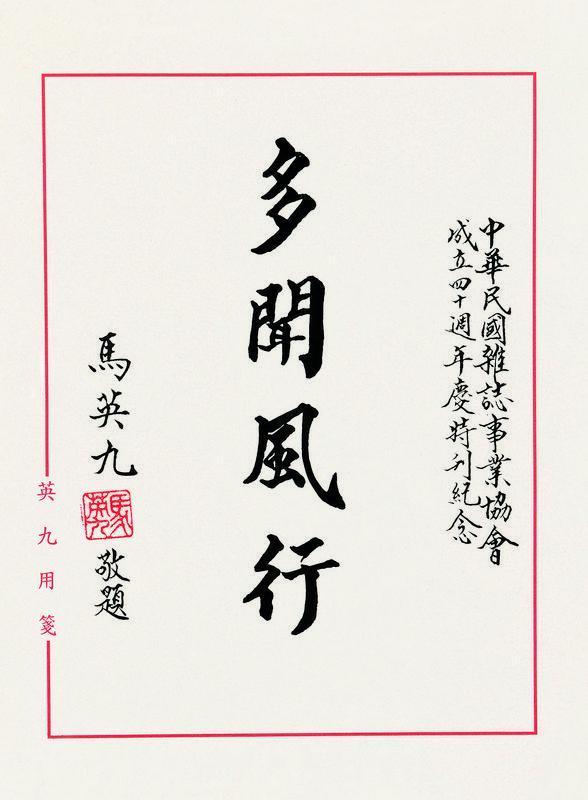 中華民國雜誌事業協會
成立四十週年慶特刊紀念
多聞風行
馬英九
馬英九
敬題
英九用箋